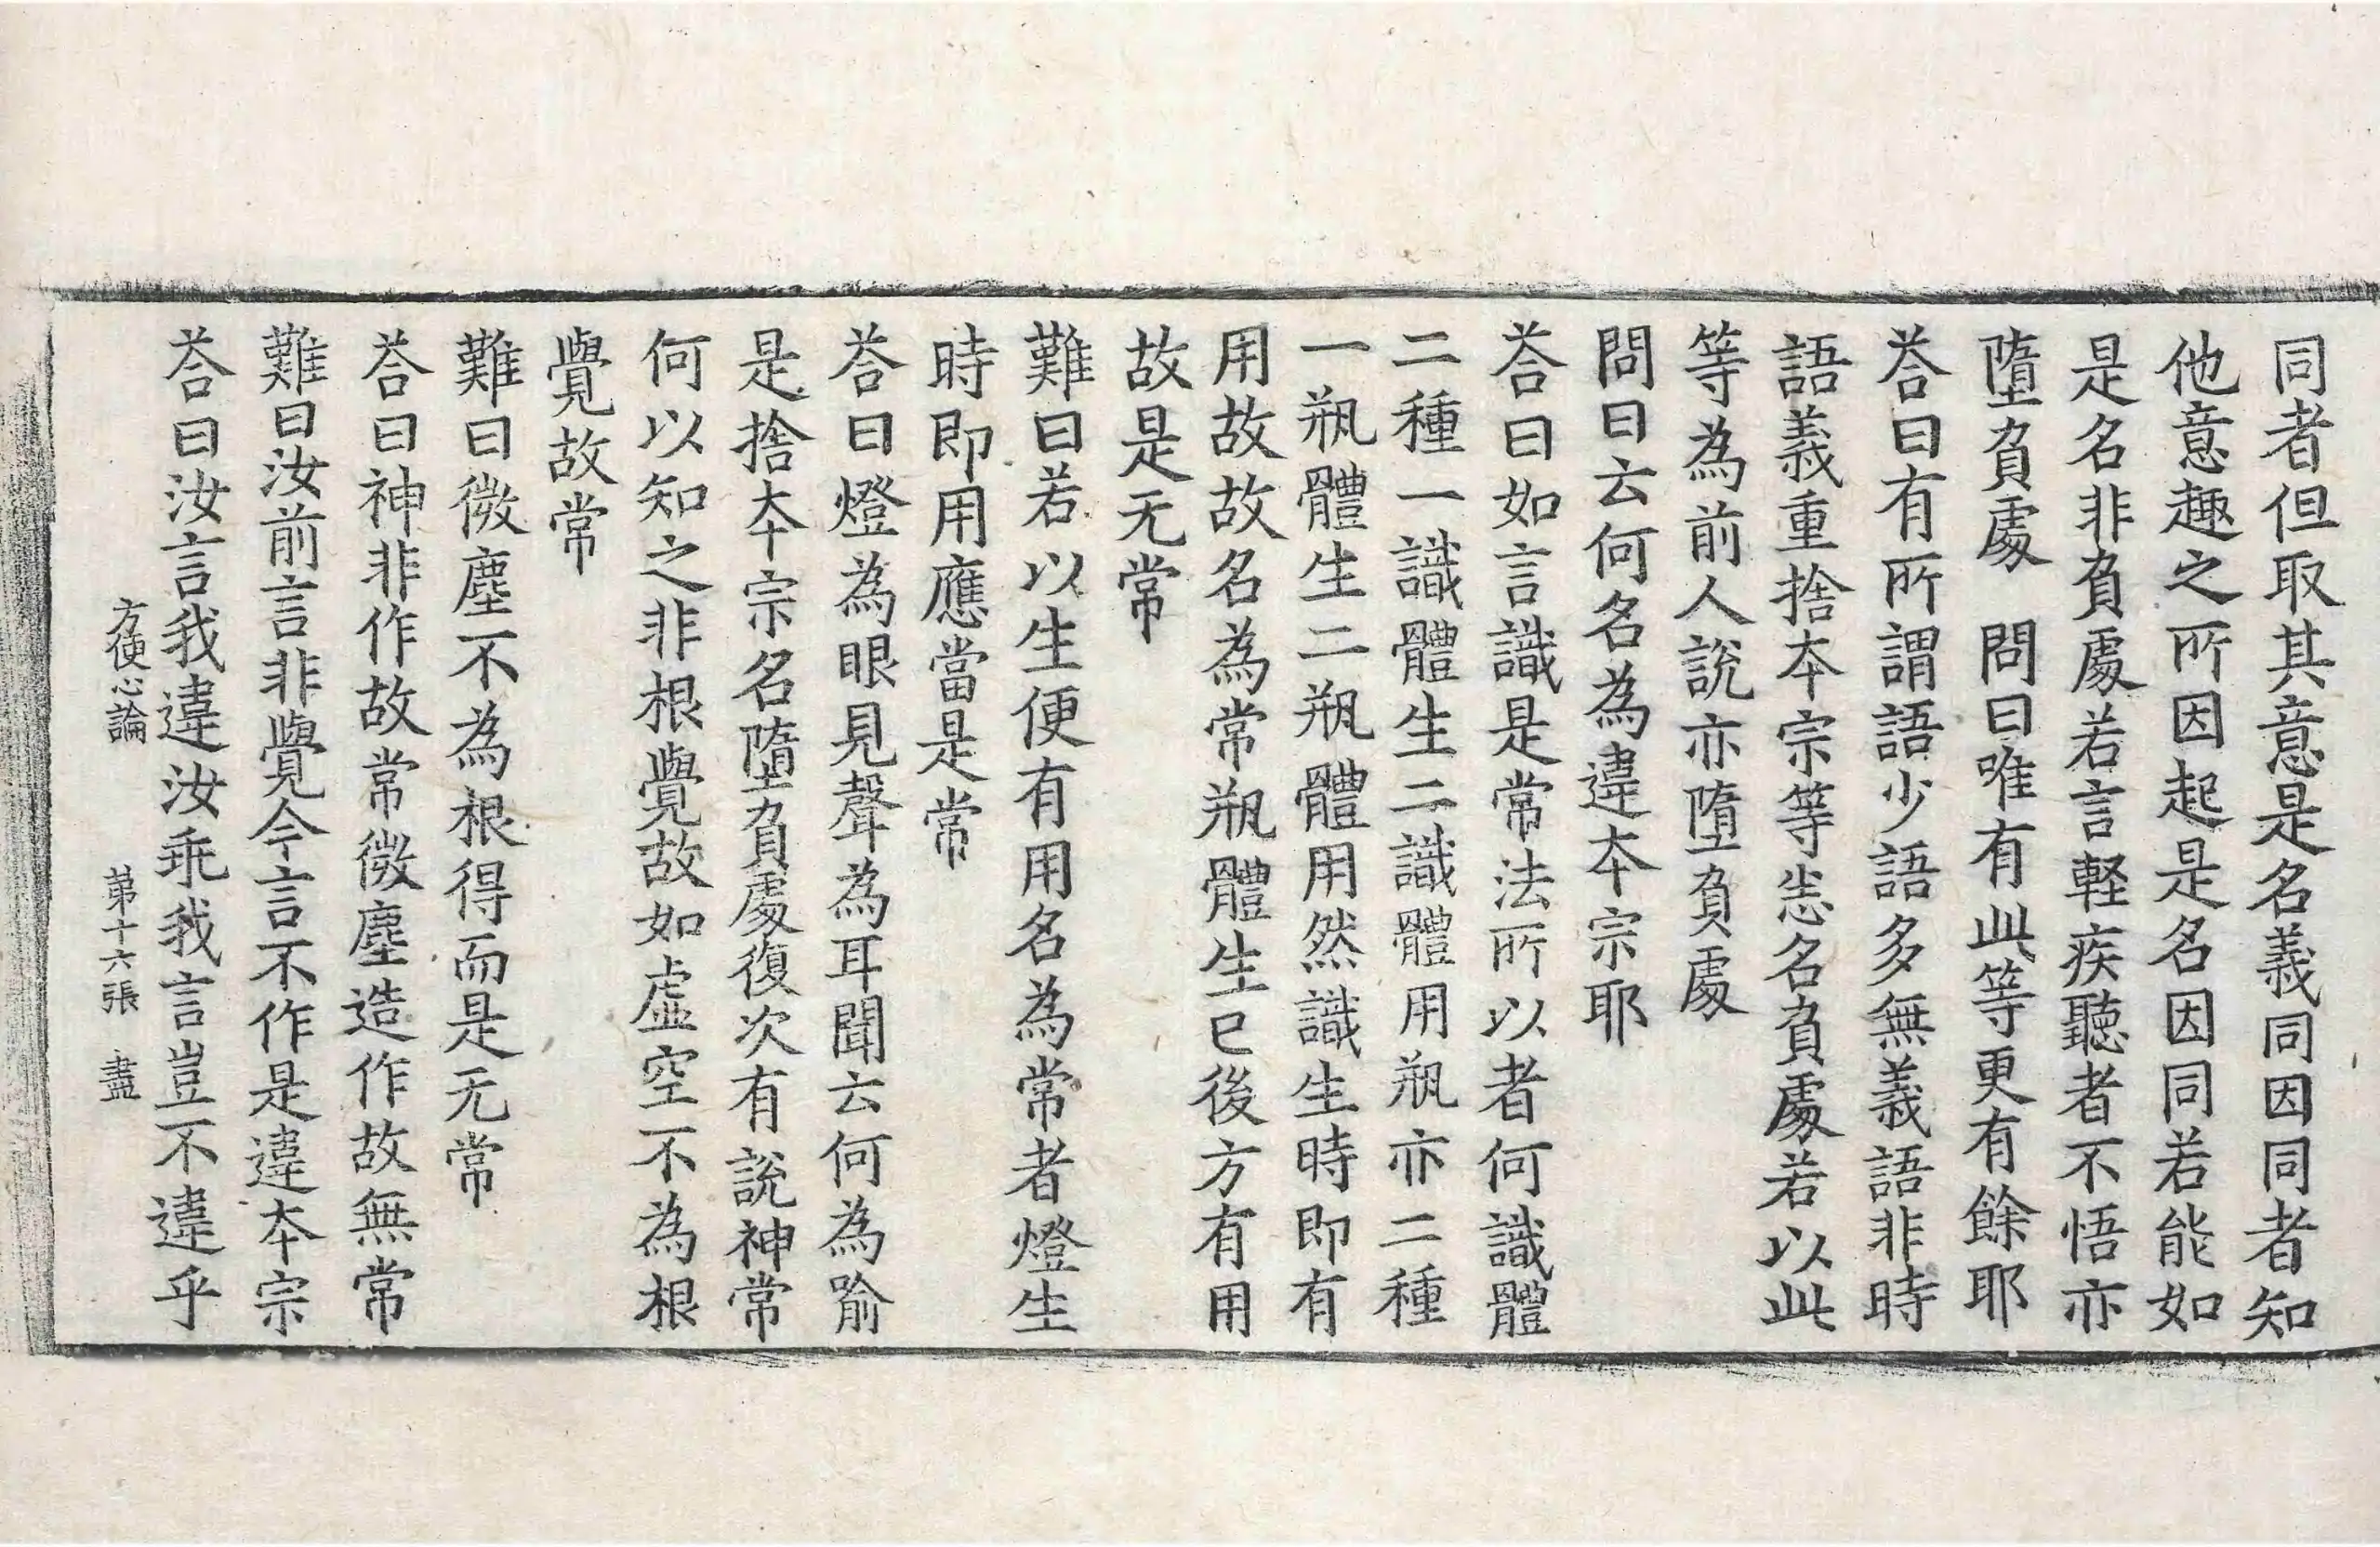 同者但取其意是名義同因同者知
他意趣之所因起是名因同若能如
是名非負處若言軽疾聽者不悟亦
墮負處　問曰唯有此等更有餘耶
荅曰有所謂語少語多無義語非時
語義重捨本宗等悉名負處若以此
等為前人說亦墮負處
問曰云何名為違本宗耶
荅曰如言識是常法所以者何識體
二種一識體生二識體用瓶亦二種
一瓶體生二瓶體用然識生時即有
用故故名為常瓶體生已後方有用
故是无常
難曰若以生便有用名為常者燈生
時即用應當是常
荅曰燈為眼見聲為耳聞云何為喻
是捨本宗名墮負處復次有說神常
何以知之非根覺故如虛空不為根
覺故常
難曰微塵不為根得而是无常
荅曰神非作故常微塵造作故無常
難曰汝前言非覺今言不作是違本宗
荅曰汝言我違汝乖我言豈不違乎
方便心論　第十六張　盡